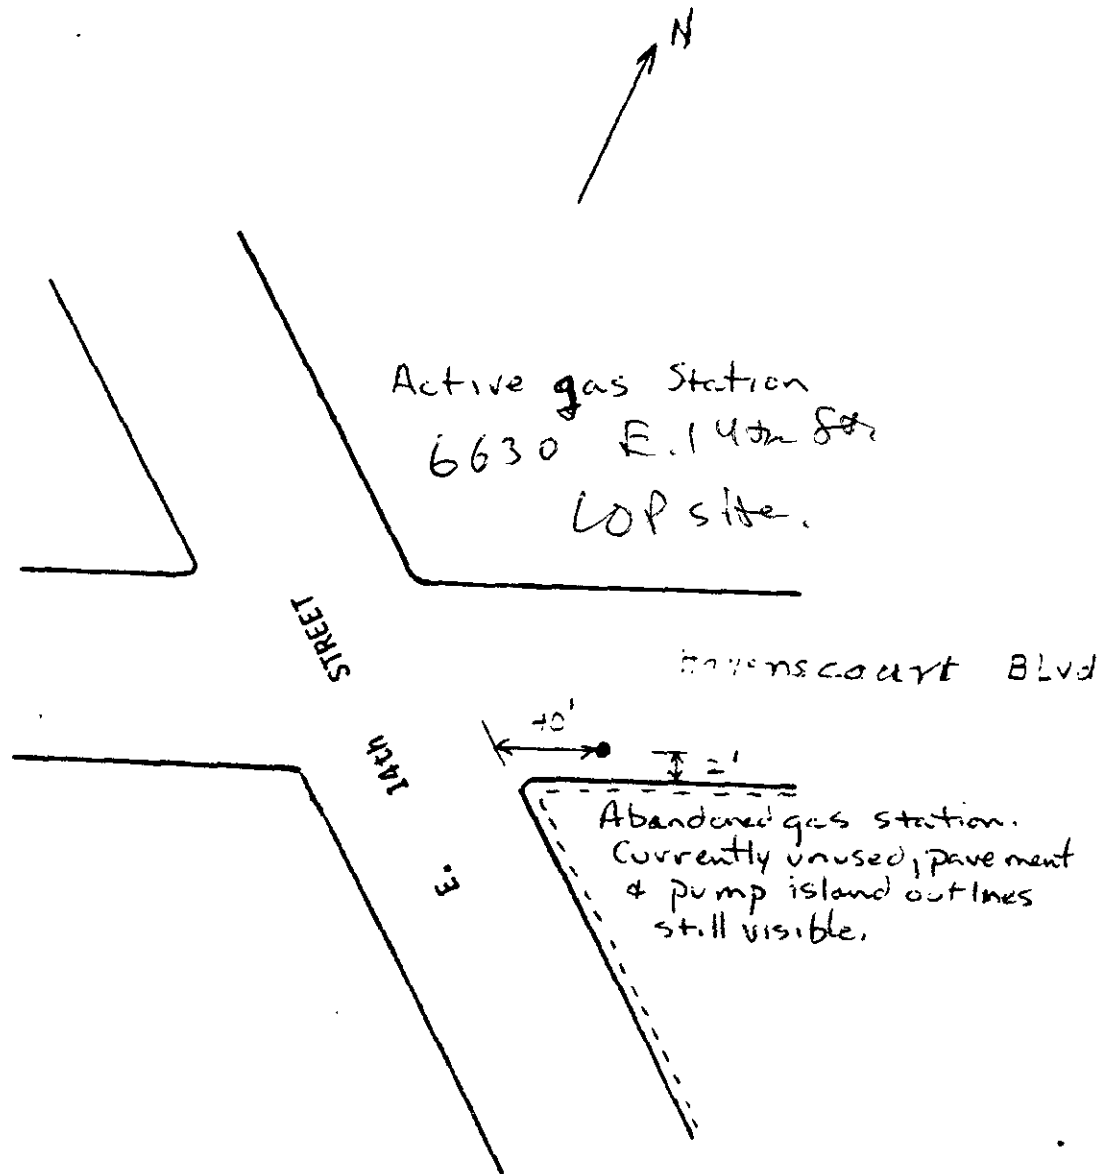 N
Active gas Station
6630 E. 14th St.
LOP site.
STREET
14th
E.
BLvd
Abandoned gas station.
Currently unused, pavement
& pump island outlines
still visible.